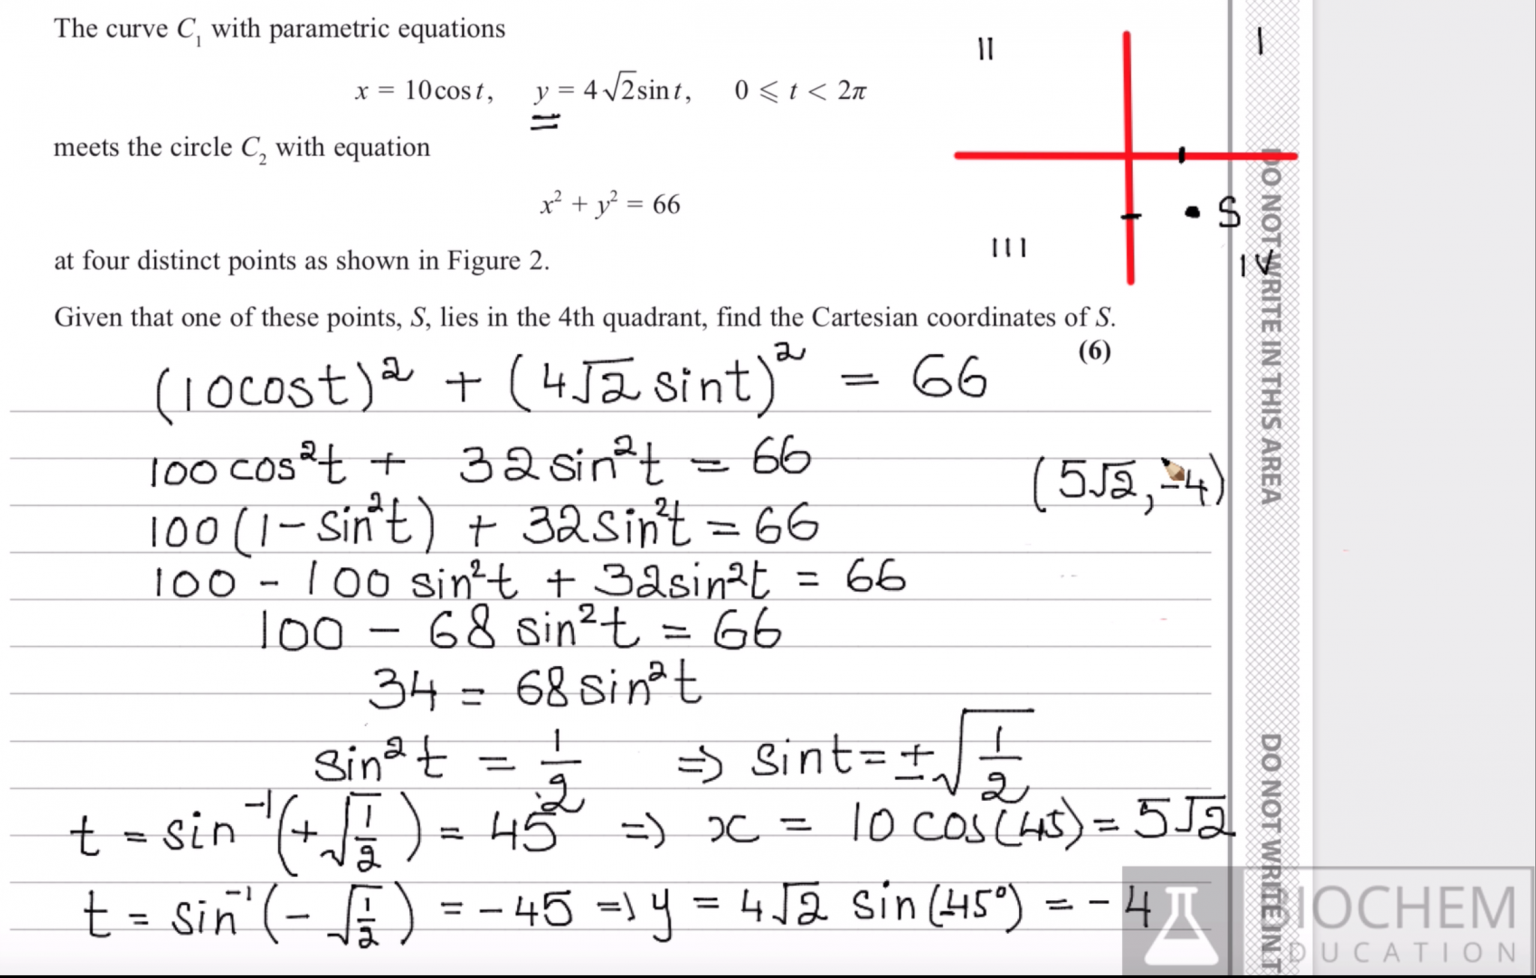 The curve C₁ with parametric equations
x = 10cos t, y = 4√2 sin t, 0 ⩽ t < 2π
meets the circle C₂ with equation
x² + y² = 66
at four distinct points as shown in Figure 2.
Given that one of these points, S, lies in the 4th quadrant, find the Cartesian coordinates of S.
(6)
II
I
S
III
IV
(10cost)² + (4√2 sint)² = 66
100 cos²t + 32 sin²t = 66
(5√2, -4)
100(1 - sin²t) + 32sin²t = 66
100 - 100 sin²t + 32sin²t = 66
100 - 68 sin²t = 66
34 = 68 sin²t
sin²t = 1/2 ⇒ sint = ±√(1/2)
t = sin⁻¹(+√(1/2)) = 45° ⇒ x = 10 cos(45) = 5√2
t = sin⁻¹(-√(1/2)) = -45 ⇒ y = 4√2 sin(-45°) = -4
DO NOT WRITE IN THIS AREA
DO NOT WRITE IN T
BIOCHEM
EDUCATION